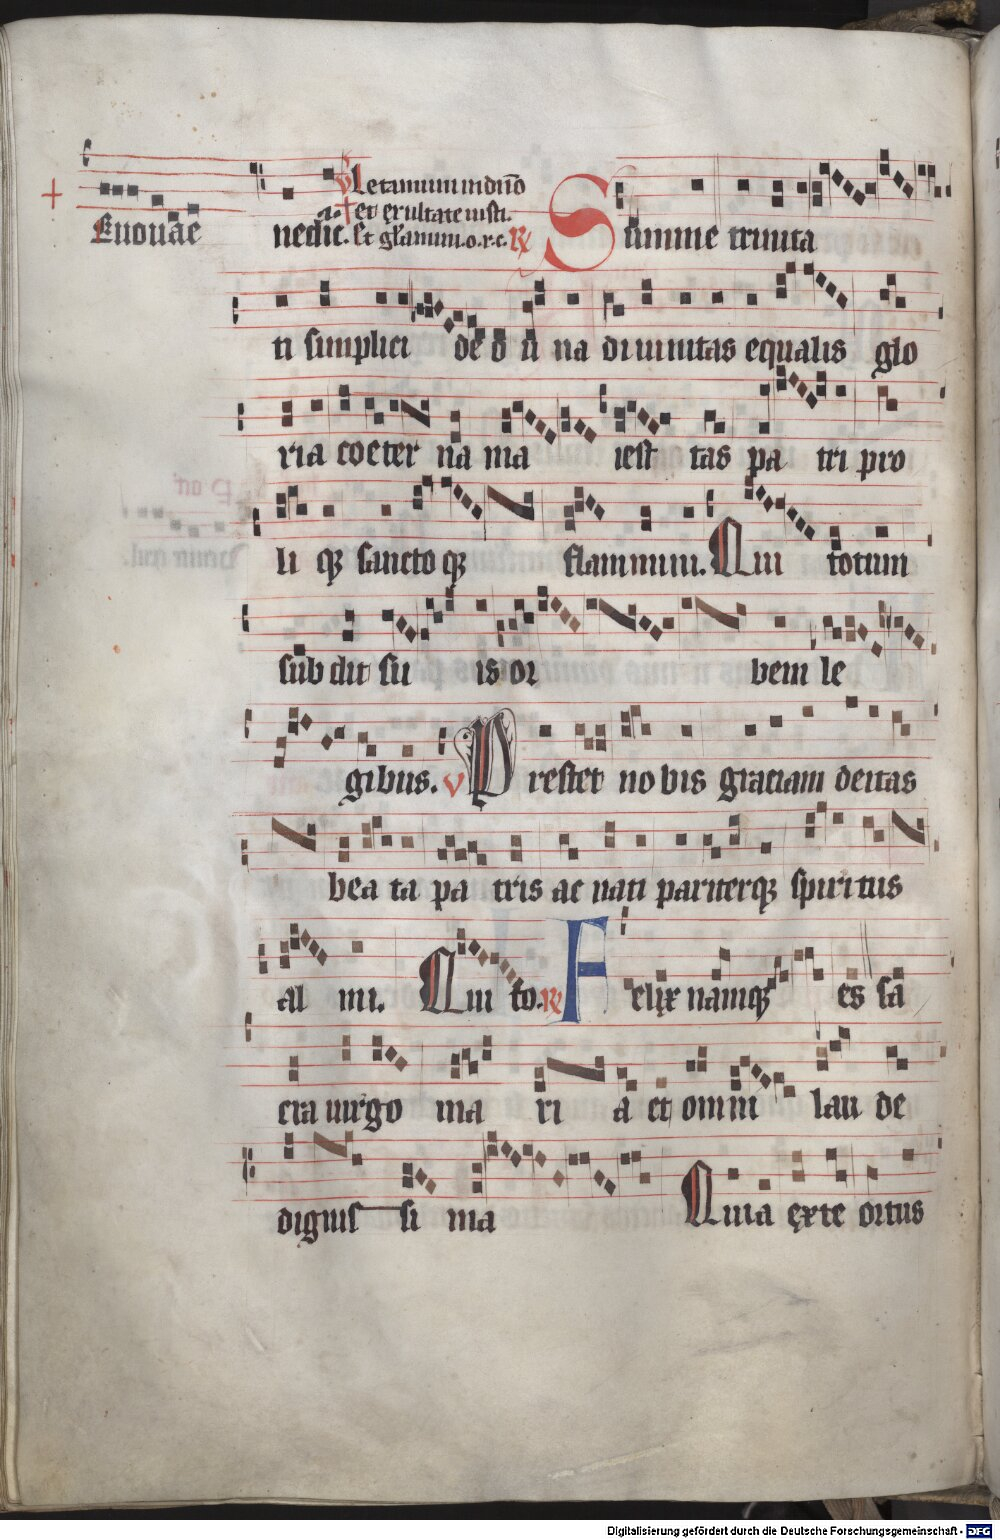 Euouae nedic. V Letamini in dno
et exultate iusti.
Et glamini.o.r.c. R Summe trinita
ti simplici de o u na diuinitas equalis glo
ria coeter na ma iest tas pa tri pro
li qz sancto qz flammini. Qui totum
sub dit su is or bem le
gibus. V Prestet no bis graciam deitas
bea ta pa tris ac nati pariterqz spiritus
al mi. Qui to. R Felix namqz es sa
cra uirgo ma ri a et omni lau de
dignis si ma Quia exte ortus
Digitalisierung gefördert durch die Deutsche Forschungsgemeinschaft - DFG